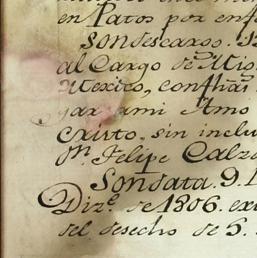 en Patos por enf
Son descargo. 
al Cargo de
Mexico, con
gar a mi Amo
Cristo, sin inclu
Dn. Felipe Calz
Son data. 9.
Dize. de 1806. ex
del desecho de 5.